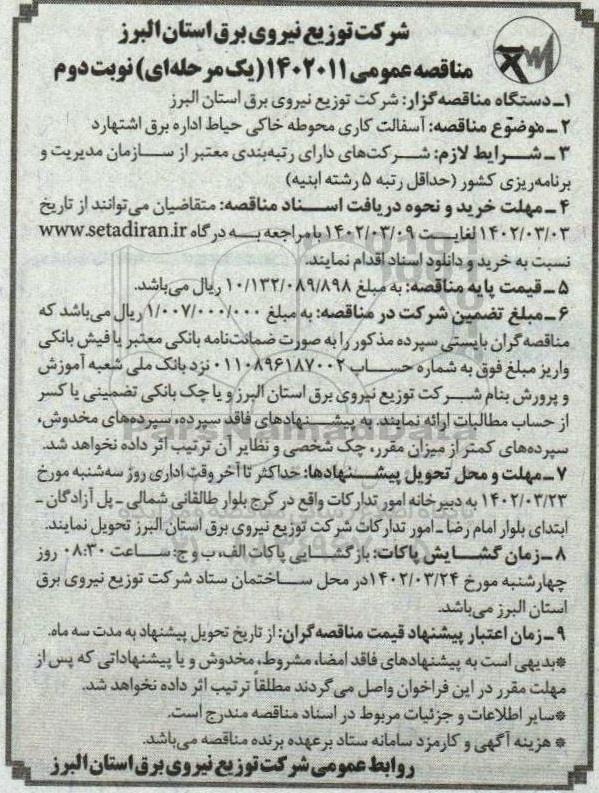 شرکت توزیع نیروی برق استان البرز
مناقصه عمومی ۱۴۰۲۰۱۱ (یک مرحله‌ای) نوبت دوم
۱ـ دستگاه مناقصه‌گزار: شرکت توزیع نیروی برق استان البرز
۲ ـ موضوع مناقصه: آسفالت کاری محوطه خاکی حیاط اداره برق اشتهارد
۳ ـ شرایط لازم: شرکت‌های دارای رتبه‌بندی معتبر از سازمان مدیریت و
برنامه‌ریزی کشور (حداقل رتبه ۵ رشته ابنیه)
۴ ـ مهلت خرید و نحوه دریافت اسناد مناقصه: متقاضیان می‌توانند از تاریخ
۱۴۰۲/۰۳/۰۳ لغایت ۱۴۰۲/۰۳/۰۹ با مراجعه به درگاه www.setadiran.ir
نسبت به خرید و دانلود اسناد اقدام نمایند.
۵ ـ قیمت پایه مناقصه: به مبلغ ۱۰/۱۳۲/۰۸۹/۸۹۸ ریال می‌باشد.
۶ ـ مبلغ تضمین شرکت در مناقصه: به مبلغ ۱/۰۰۷/۰۰۰/۰۰۰ ریال می‌باشد که
مناقصه‌گران بایستی سپرده مذکور را به صورت ضمانت‌نامه بانکی معتبر یا فیش بانکی
واریز مبلغ فوق به شماره حساب ۰۱۱۰۸۹۶۱۸۷۰۰۲ نزد بانک ملی شعبه آموزش
و پرورش بنام شرکت توزیع نیروی برق استان البرز و یا چک بانکی تضمینی یا کسر
از حساب مطالبات ارائه نمایند. به پیشنهادهای فاقد سپرده، سپرده‌های مخدوش،
سپرده‌های کمتر از میزان مقرر، چک شخصی و نظایر آن ترتیب اثر داده نخواهد شد.
۷ ـ مهلت و محل تحویل پیشنهادها: حداکثر تا آخر وقت اداری روز سه‌شنبه مورخ
۱۴۰۲/۰۳/۲۳ به دبیرخانه امور تدارکات واقع در کرج بلوار طالقانی شمالی ـ پل آزادگان ـ
ابتدای بلوار امام رضا ـ امور تدارکات شرکت توزیع نیروی برق استان البرز تحویل نمایند.
۸ ـ زمان گشایش پاکات: بازگشایی پاکات الف، ب و ج: ساعت ۰۸:۳۰ روز
چهارشنبه مورخ ۱۴۰۲/۰۳/۲۴ در محل ساختمان ستاد شرکت توزیع نیروی برق
استان البرز می‌باشد.
۹ ـ زمان اعتبار پیشنهاد قیمت مناقصه‌گران: از تاریخ تحویل پیشنهاد به مدت سه ماه.
*بدیهی است به پیشنهادهای فاقد امضا، مشروط، مخدوش و یا پیشنهاداتی که پس از
مهلت مقرر در این فراخوان واصل می‌گردند مطلقاً ترتیب اثر داده نخواهد شد.
*سایر اطلاعات و جزئیات مربوط در اسناد مناقصه مندرج است.
* هزینه آگهی و کارمزد سامانه ستاد برعهده برنده مناقصه می‌باشد.
روابط عمومی شرکت توزیع نیروی برق استان البرز